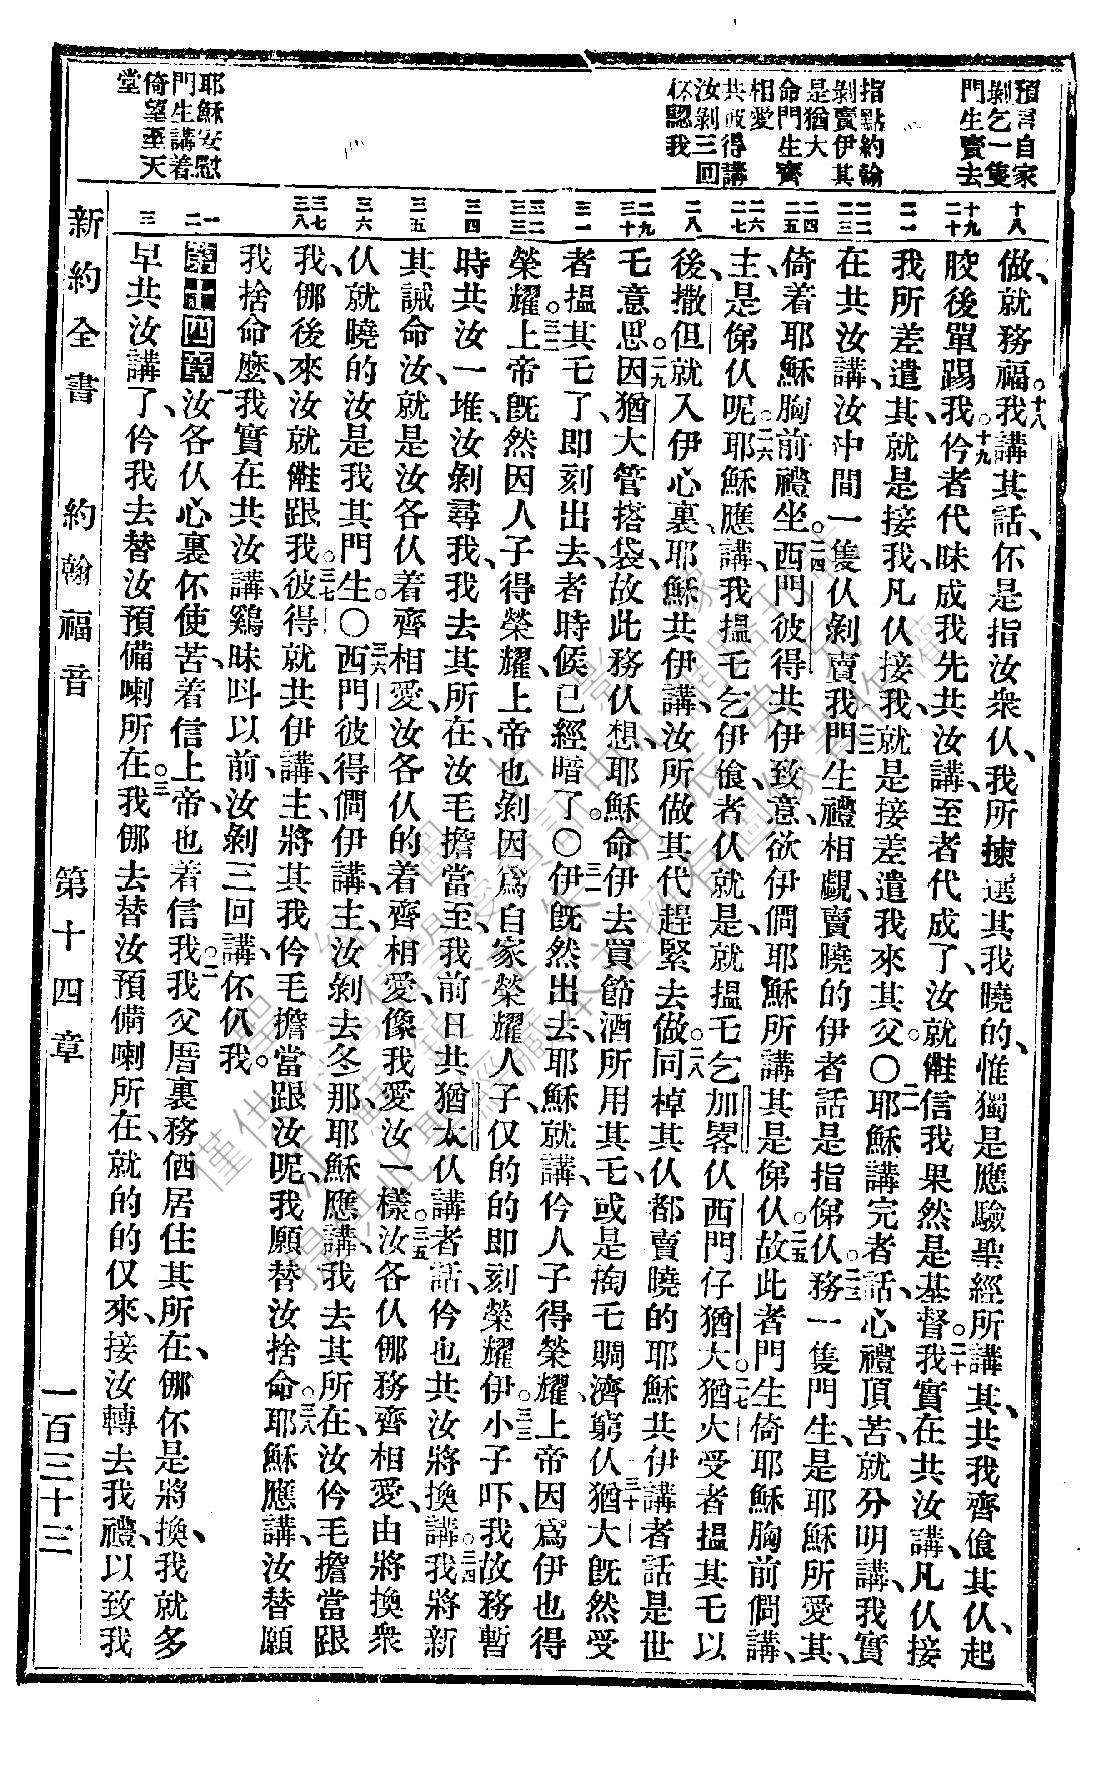 預言自家
剝乞一隻
門生賣去
指點約翰
剝賣伊其
是猶大
命門生齊
相愛
共彼得講
汝剝三回
伓認我
耶穌安慰
門生講着
倚望至天
堂
十八
十九
二十
二一
二二
二三
二四
二五
二六
二七
二八
二九
三十
三一
三二
三三
三四
三五
三六
三七
三八
一
二
三
做、就務福。十八我講其話、伓是指汝衆仈、我所揀選其我曉的、惟獨是應驗聖經所講其、共我齊飡其仈、起
腔後單踢我。十九仱者代昧成我先共汝講、至者代成了、汝就㑚信我果然是基督。二十我實在共汝講、凡仈接
我所差遣其、就是接我、凡仈接我、就是接差遣我來其父。〇二一耶穌講完者話、心禮頂苦、就分明講、我實
在共汝講、汝中間一隻仈剝賣我。二二門生禮相覷、賣曉的伊者話是指俤仈。二三務一隻門生、是耶穌所愛其、
倚着耶穌胸前禮坐。二四西門彼得共伊致意、欲伊僩耶穌所講其是俤仈。二五故此者門生倚耶穌胸前僩講、
主、是俤仈呢。二六耶穌應講、我搵乇乞伊飡者仈就是、就搵乇乞加畧仈西門仔猶大。二七猶大受者搵其乇以
後、撒但就入伊心裏、耶穌共伊講、汝所做其代趕緊去做。二八同棹其仈、都賣曉的耶穌共伊講者話是世
乇意思。二九因猶大管搭袋、故此務仈想、耶穌命伊去買節酒所用其乇、或是掏乇賙濟窮仈。三十猶大旣然受
者搵其乇了、即刻出去、者時候已經暗了。〇三一伊旣然出去、耶穌就講、仱人子得榮耀、上帝因爲伊也得
榮耀。三二上帝旣然因人子得榮耀、上帝也剝因爲自家榮耀人子、仅的的即刻榮耀伊。三三小子吓、我故務暫
時共汝一堆、汝剝尋我、我去其所在、汝乇擔當至、我前日共猶太仈講者話、仱也共汝將換講。三四我將新
其誡命、汝、就是汝各仈着齊相愛、汝各仈的着齊相愛、像我愛汝一樣。三五汝各仈倻務齊相愛、由將換衆
仈就曉的汝是我其門生。〇三六西門彼得僩伊講、主、汝剝去冬那、耶穌應講、我去其所在、汝仱乇擔當跟
我、倻後來汝就㑚跟我。三七彼得就共伊講、主、將其我仱乇擔當跟汝呢、我願替汝捨命。三八耶穌應講、汝替願
我捨命麽、我實在共汝講、鷄昧呌以前、汝剝三回講、伓仈我。
第十四章 一汝各仈心裏伓使苦、着信上帝、也着信我。二我父厝裏務価居住其所在、倻伓是將換、我就多
早共汝講了、仱我去替汝預備喇所在。三我倻去替汝預備喇所在、就的的仅來、接汝轉去我禮、以致我
新約全書 約翰福音 第十四章 一百三十三